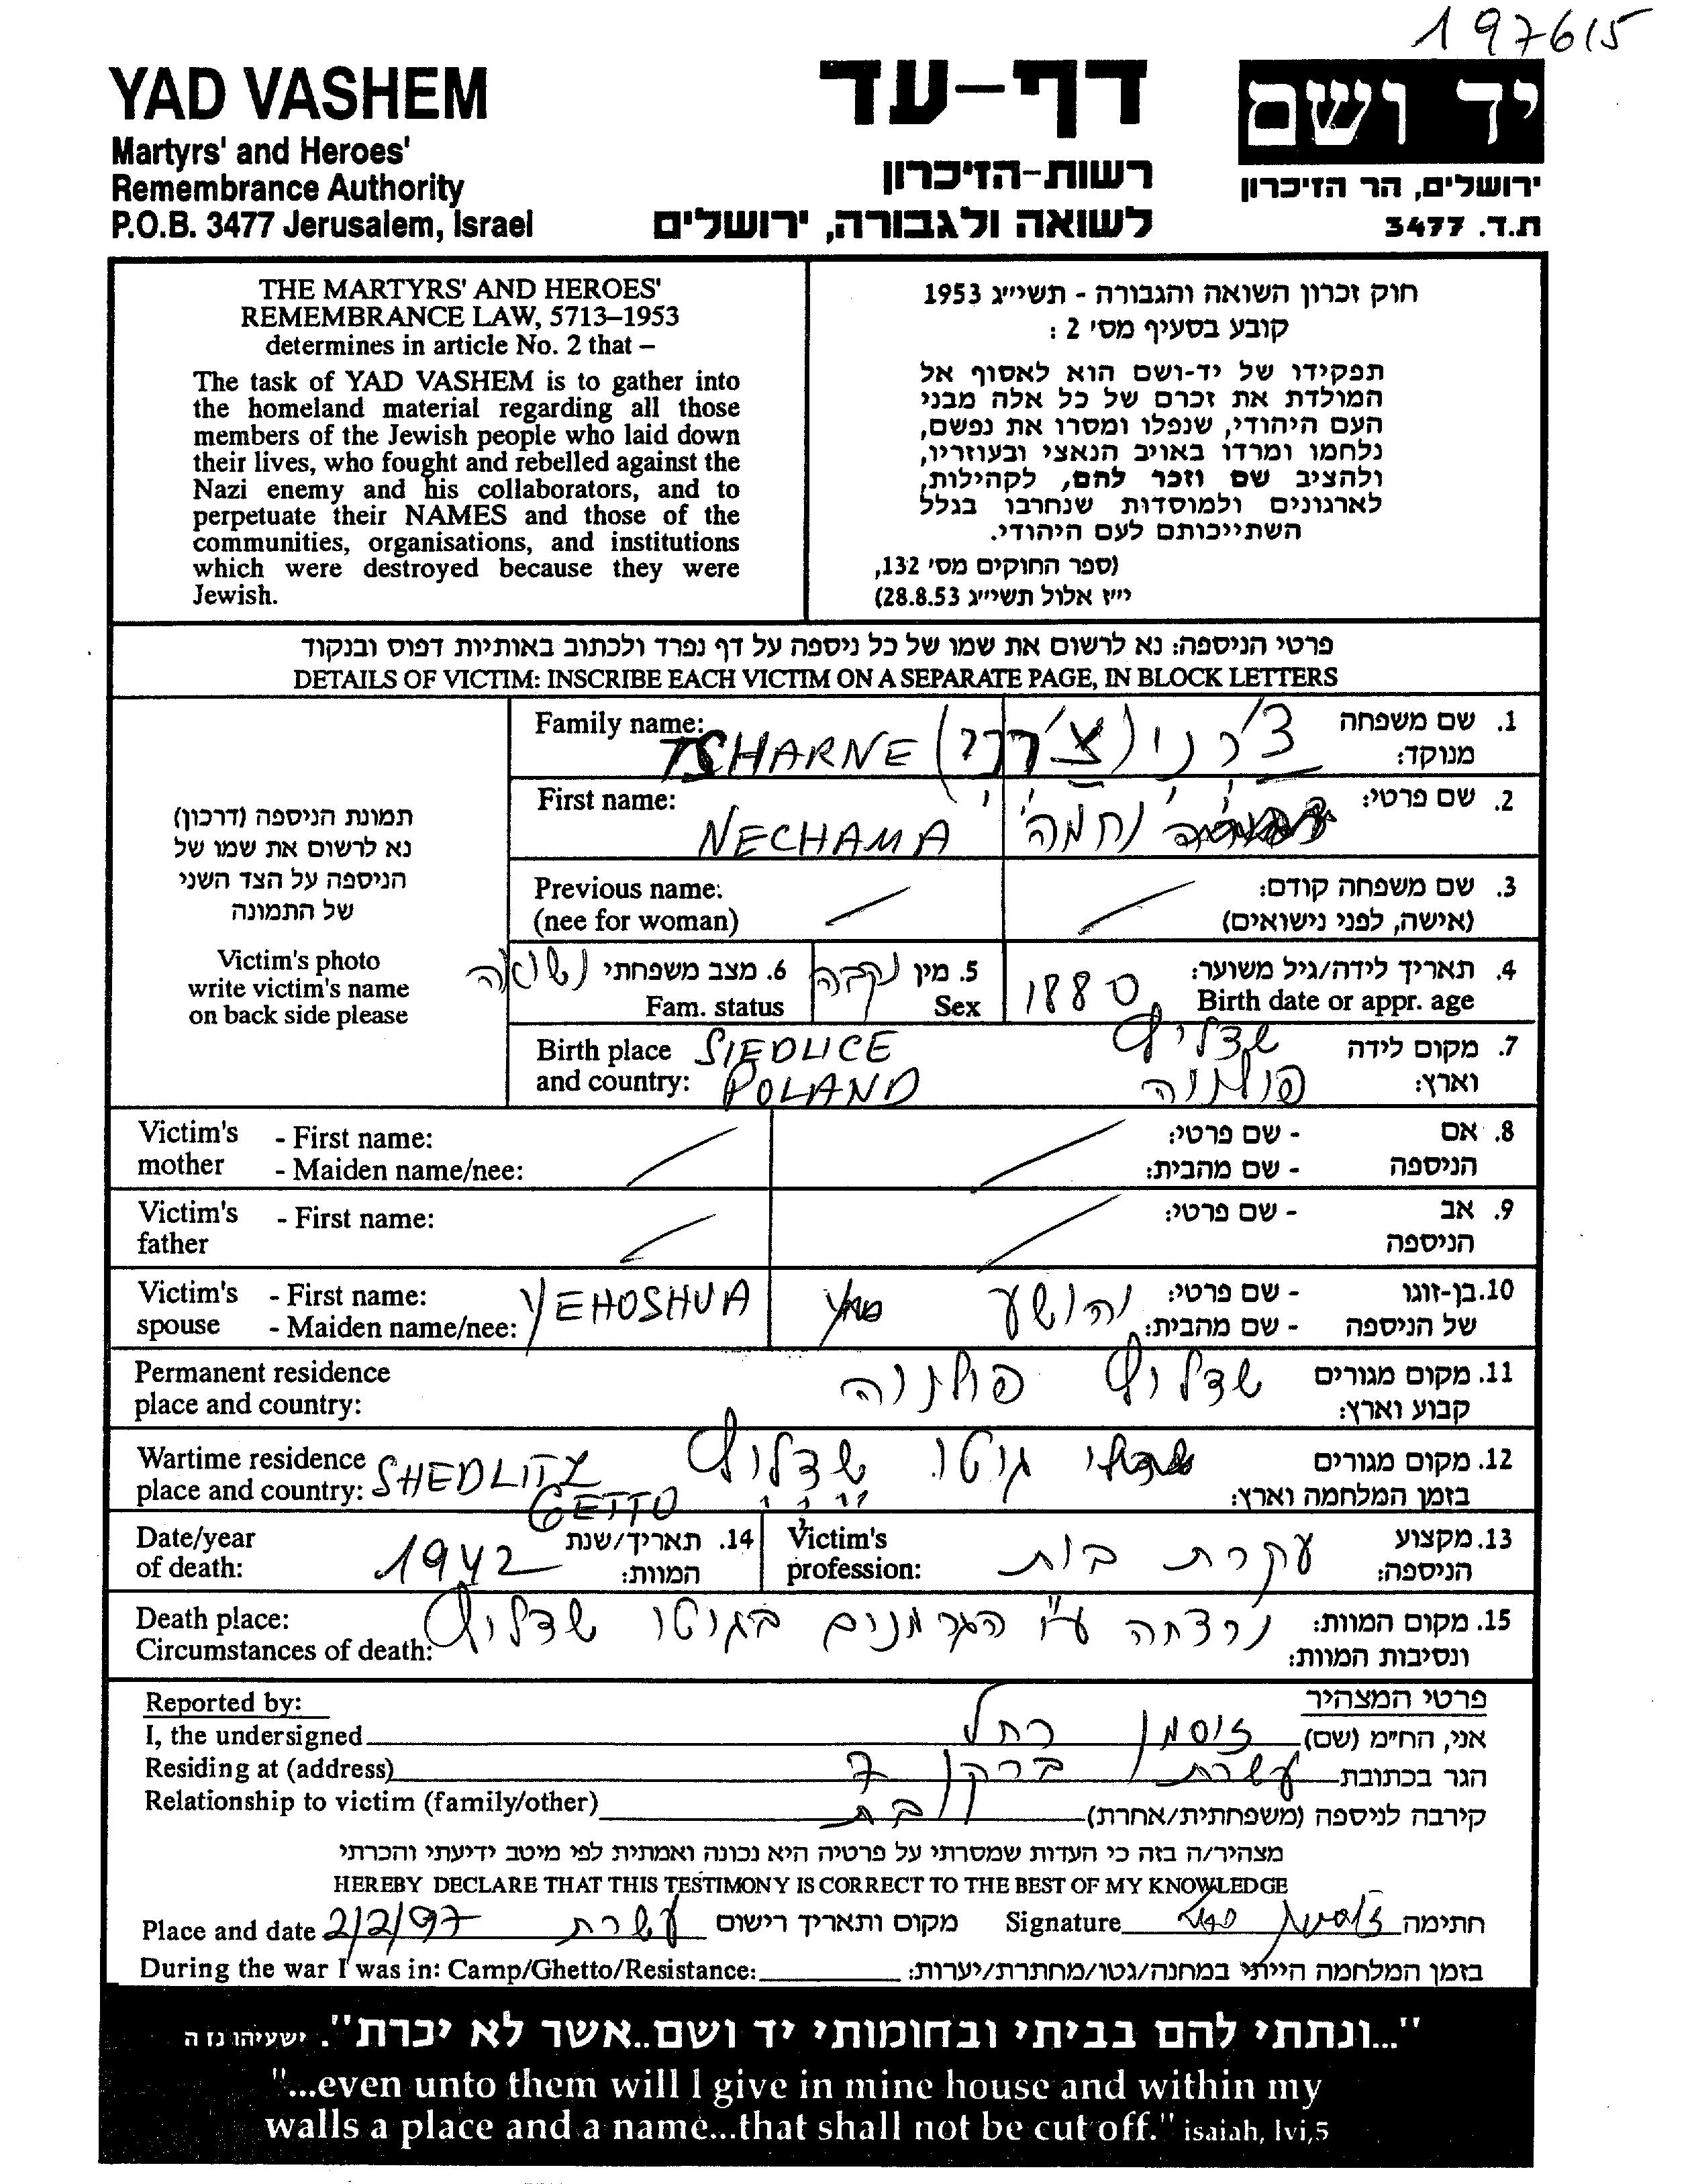 197615
YAD VASHEM
Martyrs' and Heroes'
Remembrance Authority
P.O.B. 3477 Jerusalem, Israel
דף-עד
רשות-הזיכרון
לשואה ולגבורה, ירושלים
יד ושם
ירושלים, הר הזיכרון
ת.ד. 3477
THE MARTYRS' AND HEROES'
REMEMBRANCE LAW, 5713–1953
determines in article No. 2 that –
The task of YAD VASHEM is to gather into
the homeland material regarding all those
members of the Jewish people who laid down
their lives, who fought and rebelled against the
Nazi enemy and his collaborators, and to
perpetuate their NAMES and those of the
communities, organisations, and institutions
which were destroyed because they were
Jewish.
חוק זכרון השואה והגבורה - תשי״ג 1953
קובע בסעיף מס׳ 2 :
תפקידו של יד-ושם הוא לאסוף אל
המולדת את זכרם של כל אלה מבני
העם היהודי, שנפלו ומסרו את נפשם,
נלחמו ומרדו באויב הנאצי ובעוזריו,
ולהציב שם וזכר להם, לקהילות,
לארגונים ולמוסדות שנחרבו בגלל
השתייכותם לעם היהודי.
(ספר החוקים מס׳ 132,
י״ז אלול תשי״ג 28.8.53)
פרטי הניספה: נא לרשום את שמו של כל ניספה על דף נפרד ולכתוב באותיות דפוס ובנקוד
DETAILS OF VICTIM: INSCRIBE EACH VICTIM ON A SEPARATE PAGE, IN BLOCK LETTERS
תמונת הניספה (דרכון)
נא לרשום את שמו של
הניספה על הצד השני
של התמונה
Victim's photo
write victim's name
on back side please
Family name: TSHARNE צ'רני (צ'רני) 1. שם משפחה
מנוקד:
First name: NECHAMA נחמה 2. שם פרטי:
Previous name: 3. שם משפחה קודם:
(nee for woman) (אישה, לפני נישואים)
נשואה 6. מצב משפחתי נקבה 5. מין 1880 4. תאריך לידה/גיל משוער:
Fam. status Sex Birth date or appr. age
Birth place SIEDLICE שדליץ 7. מקום לידה
and country: POLAND פולניה וארץ:
Victim's - First name: - שם פרטי: 8. אם
mother - Maiden name/nee: - שם מהבית: הניספה
Victim's - First name: - שם פרטי: 9. אב
father הניספה
Victim's - First name: YEHOSHUA יהושע - שם פרטי: 10.בן-זוגו
spouse - Maiden name/nee: - שם מהבית: של הניספה
Permanent residence שדליץ פולניה 11. מקום מגורים
place and country: קבוע וארץ:
Wartime residence SHEDLITZ גיטו שדליץ 12. מקום מגורים
place and country: GETTO בזמן המלחמה וארץ:
Date/year 1942 14. תאריך/שנת Victim's עקרת בית 13. מקצוע
of death: המוות: profession: הניספה:
Death place: נרצחה ע"י הגרמנים בגיטו שדליץ 15. מקום המוות:
Circumstances of death: ונסיבות המוות:
Reported by: פרטי המצהיר
I, the undersigned זוסמן רחל אני, הח״מ (שם)
Residing at (address) עשרת ברקן 7 הגר בכתובת
Relationship to victim (family/other) קירבה לניספה (משפחתית/אחרת)
מצהיר/ה בזה כי העדות שמסרתי על פרטיה היא נכונה ואמתית לפי מיטב ידיעתי והכרתי
HEREBY DECLARE THAT THIS TESTIMONY IS CORRECT TO THE BEST OF MY KNOWLEDGE
Place and date 2/2/97 עשרת מקום ותאריך רישום Signature חתימה
During the war I was in: Camp/Ghetto/Resistance: בזמן המלחמה הייתי במחנה/גטו/מחתרת/יערות:
"...ונתתי להם בביתי ובחומותי יד ושם..אשר לא יכרת". ישעיהו נז ה
"...even unto them will I give in mine house and within my
walls a place and a name...that shall not be cut off." isaiah, lvi,5